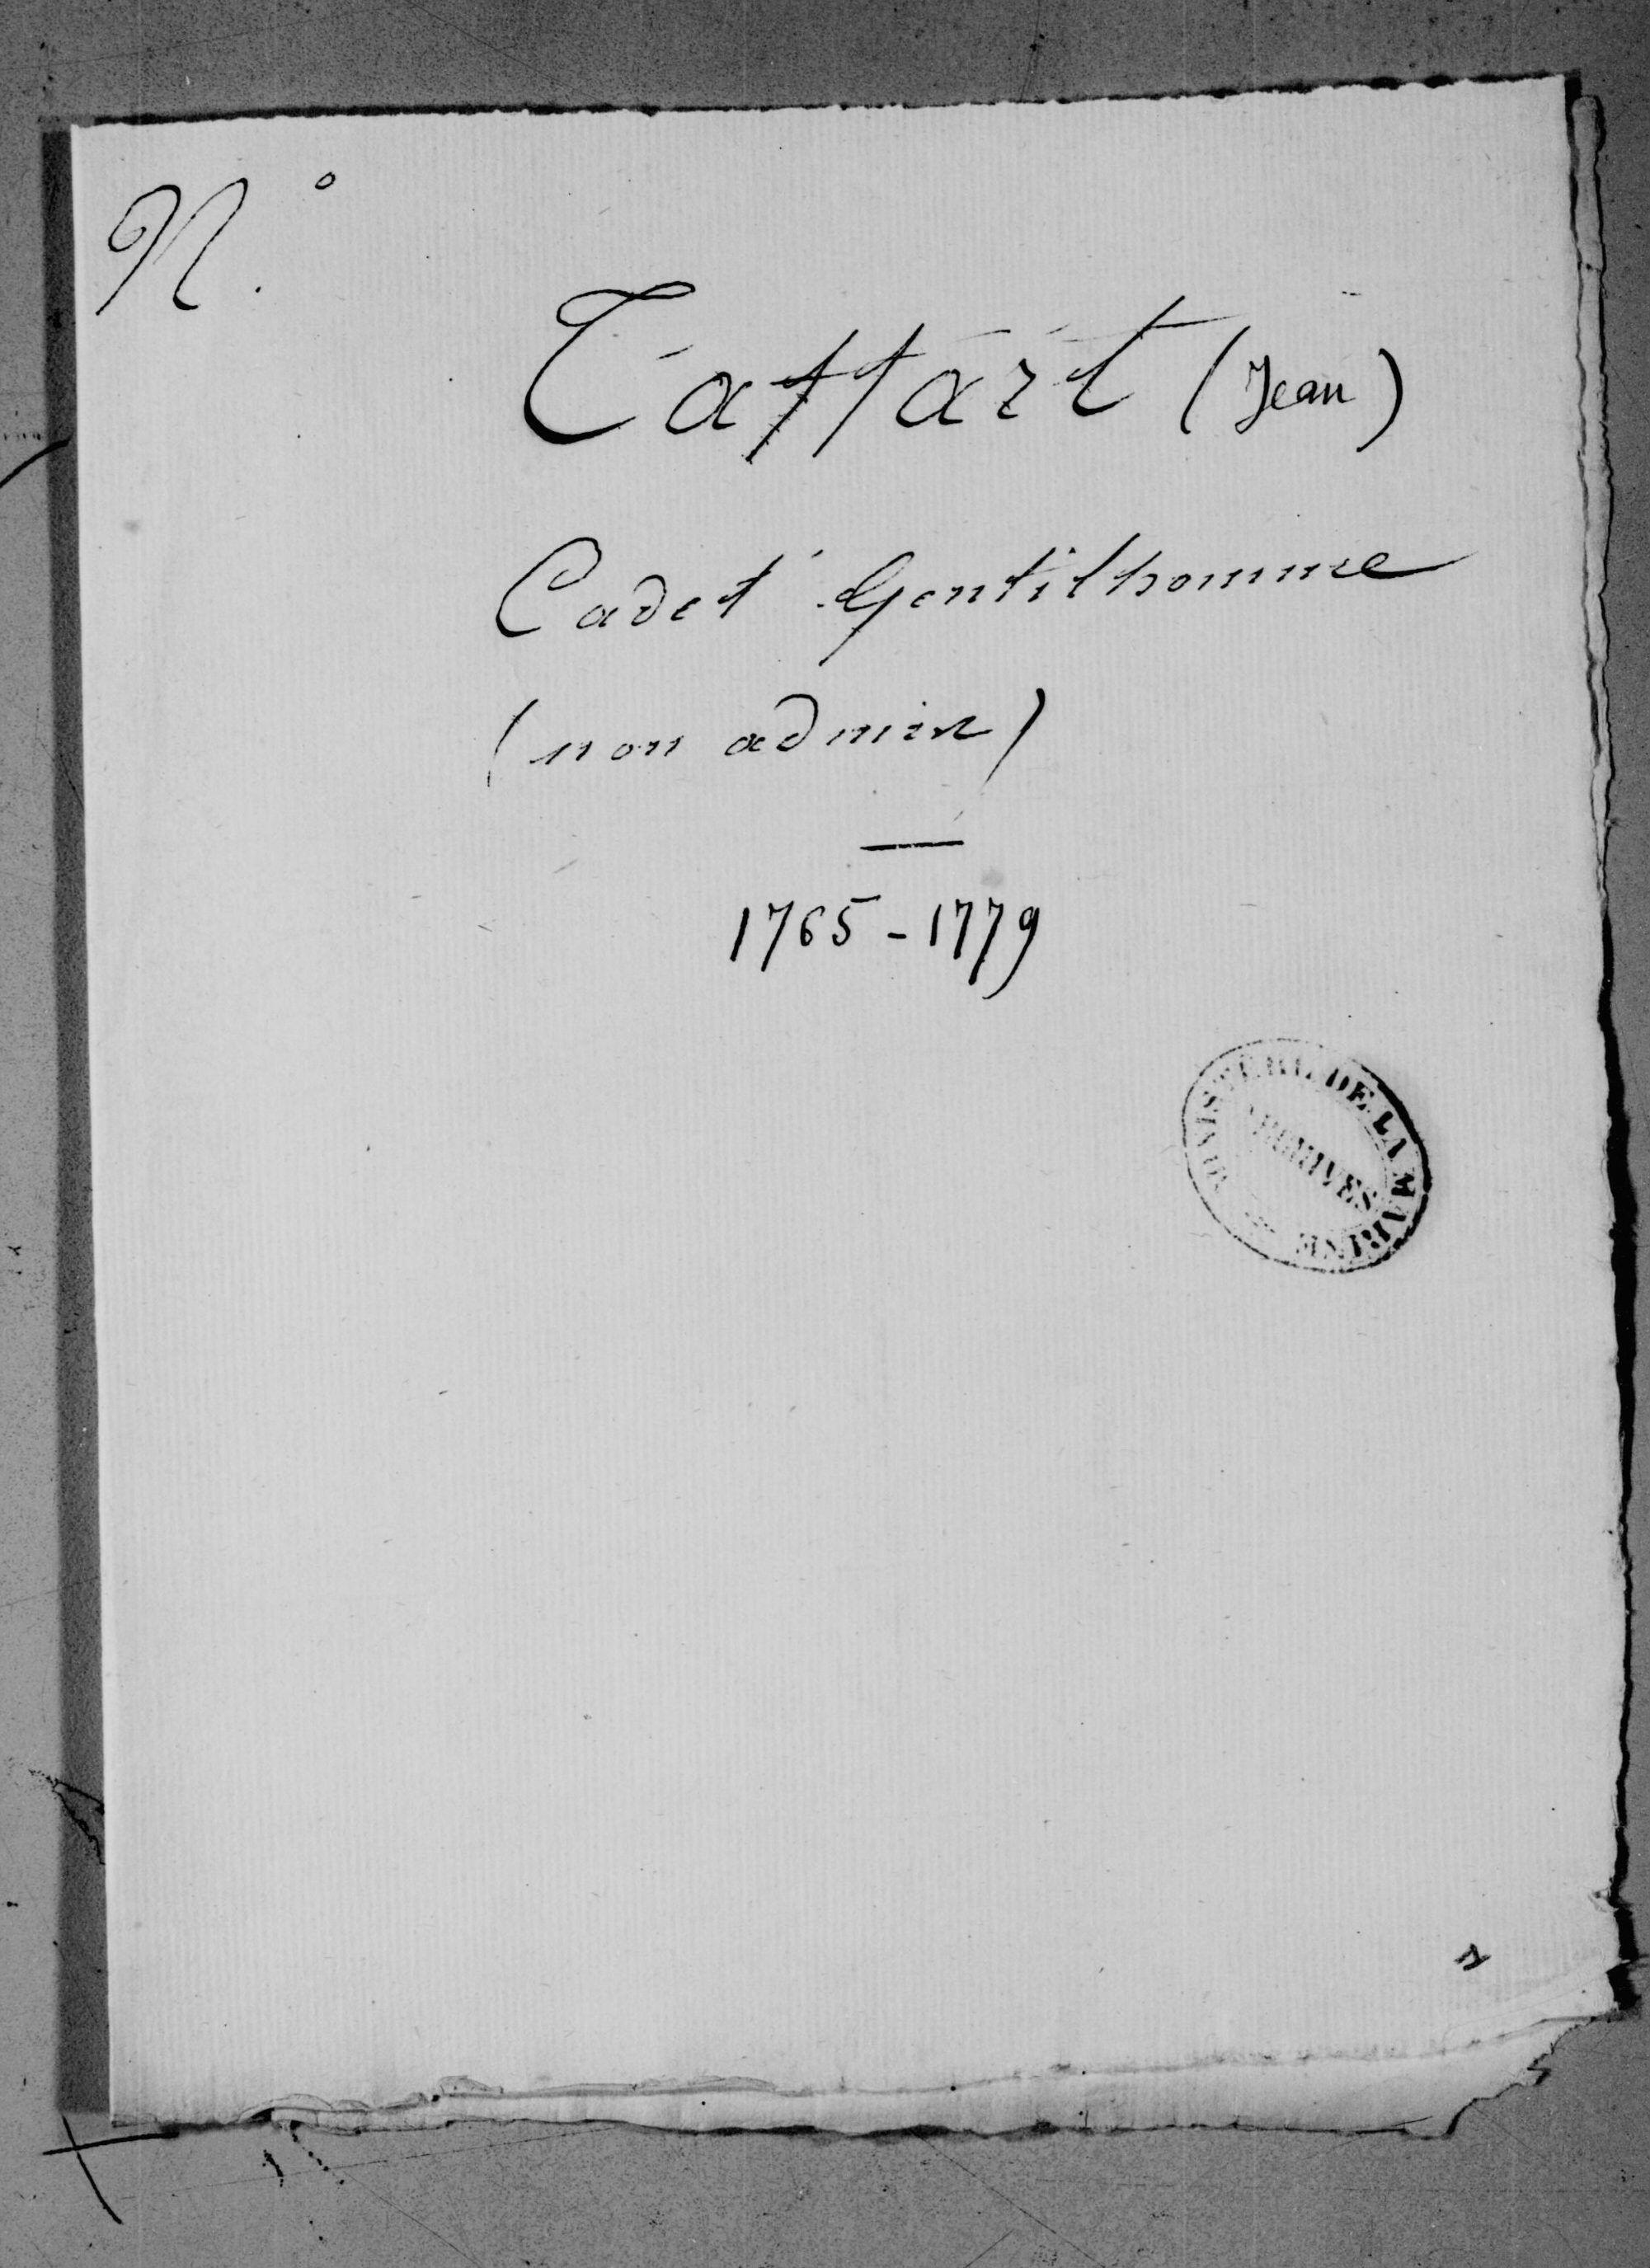 N.°
Taffart (Jean)
Cadet Gentilhomme
(non admis)
1765 - 1779
MINISTERE DE LA MARINE
ARCHIVES
1